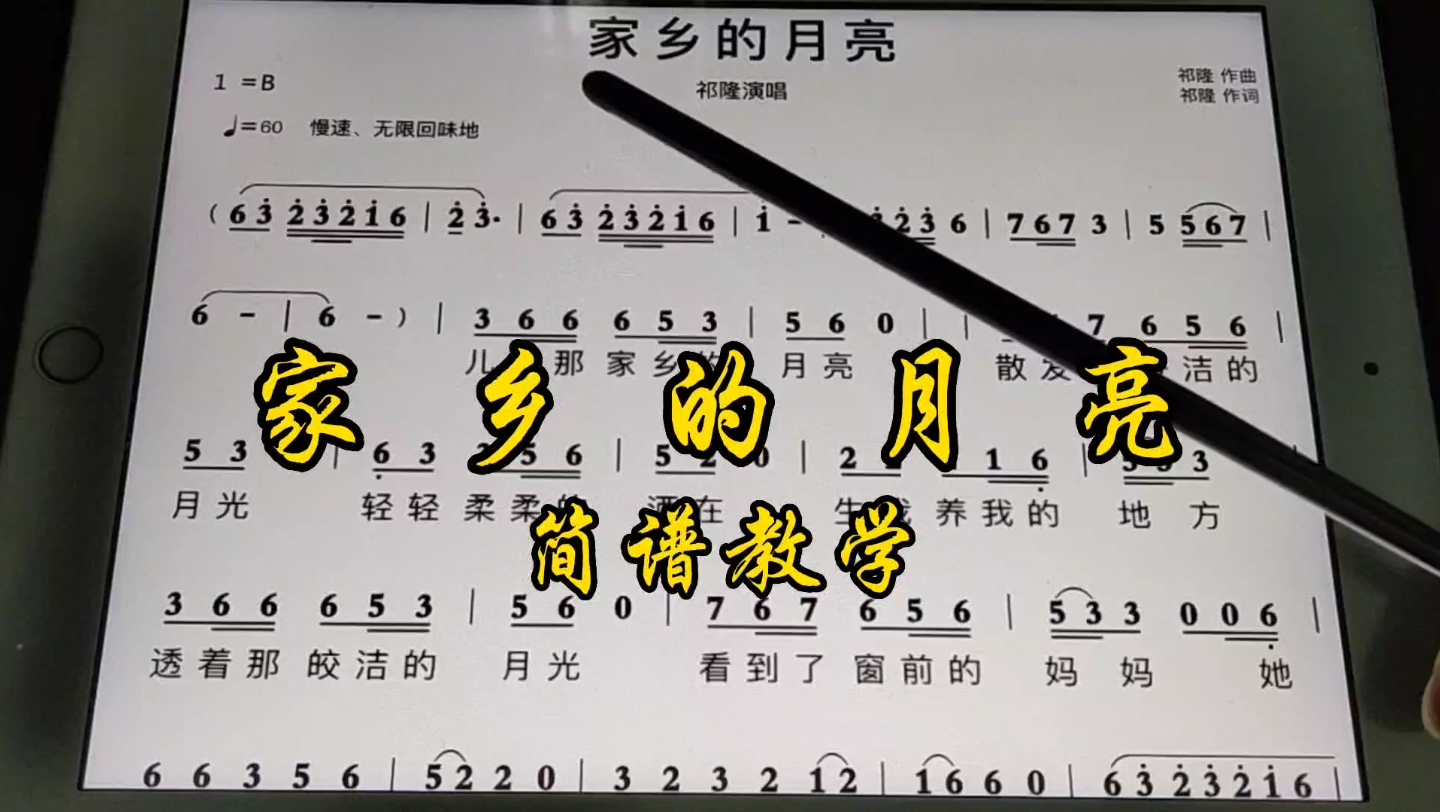 家乡的月亮
1 =B
祁隆演唱
祁隆 作曲
祁隆 作词
♩=60 慢速、无限回味地
( 6 3̇ 2̇ 3̇ 2̇ 1̇ 6 | 2̇ 3̇· | 6 3̇ 2̇ 3̇ 2̇ 1̇ 6 | 1̇ – 2̇ 3̇ 6 | 7 6 7 3 | 5 5 6 7 |
6 – | 6 – ) | 3 6 6 6 5 3 | 5 6 0 | 7 6 5 6 |
儿 那 家 乡 月 亮 散 发 洁 的
家乡的月亮
5 3 | 6̣ 3 5 6 | 5 2 0 | 2 1 6̣ | 3
月 光 轻 轻 柔 柔 在 生 养 我 的 地 方
简谱教学
3 6 6 6 5 3 | 5 6 0 | 7 6 7 6 5 6 | 5 3 3 0 0 6̣ |
透 着 那 皎 洁 的 月 光 看 到 了 窗 前 的 妈 妈 她
6 6 3 5 6 | 5 2 2 0 | 3 2 3 2 1 2 | 1 6 6 0 | 6 3̇ 2̇ 3̇ 2̇ 1̇ 6 |